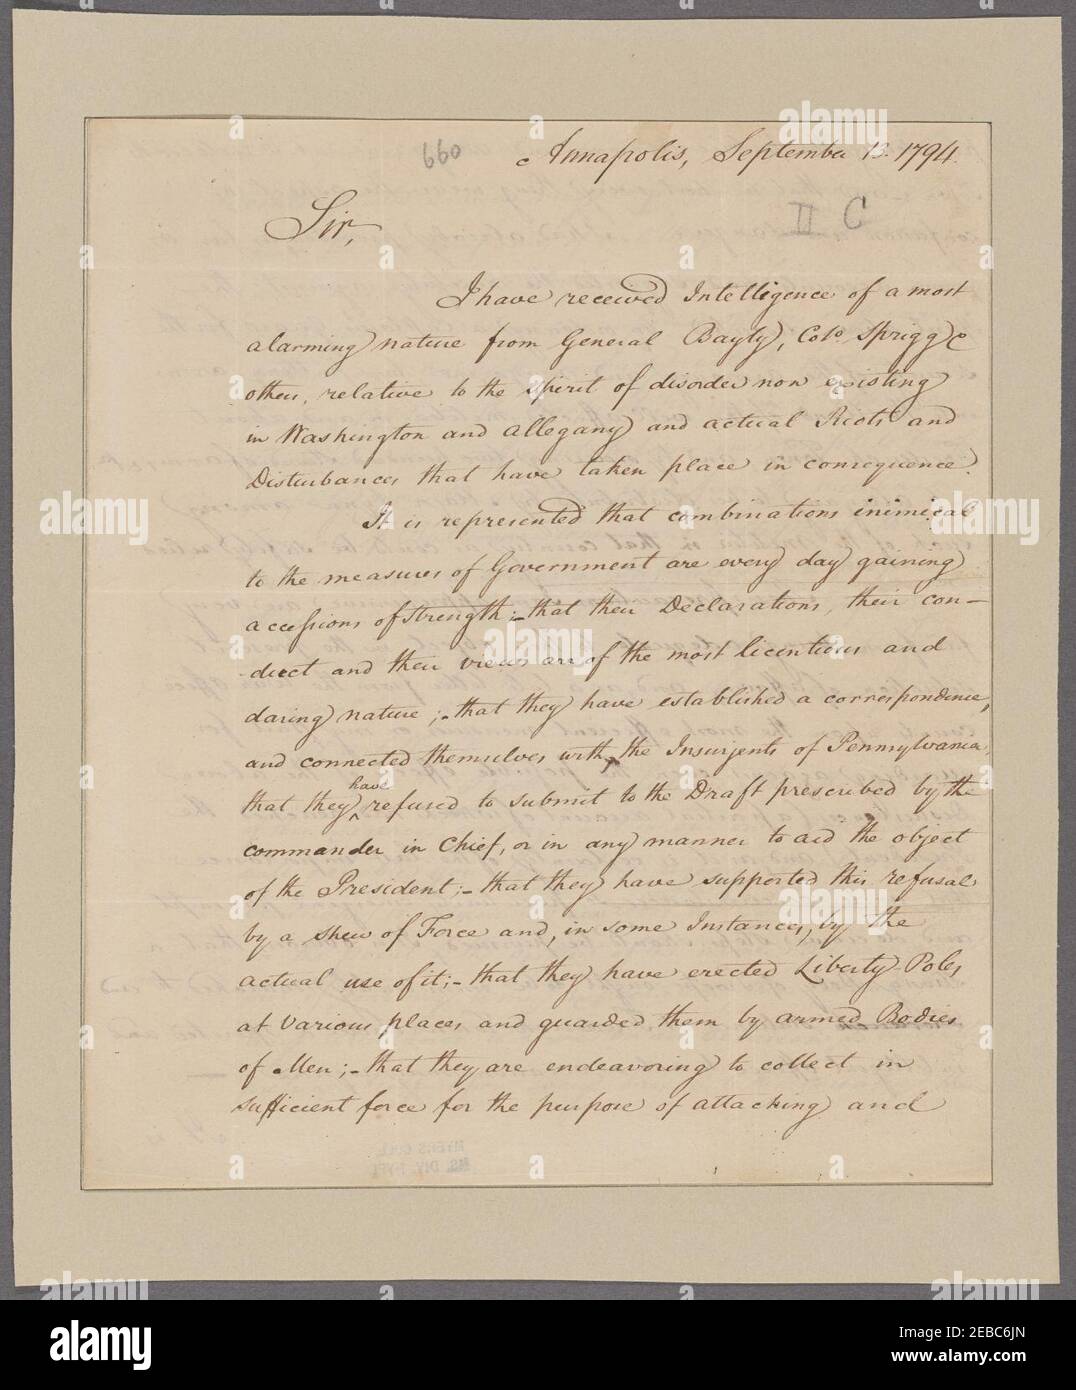 660
Annapolis, September 13. 1794.
II C
Sir,
I have received Intelligence of a most
alarming nature from General Bayly, Colo. Sprigg &
others, relative to the spirit of disorder now existing
in Washington and Allegany and actual Riots and
Disturbances that have taken place in consequence.
It is represented that combinations inimical
to the measures of Government are every day gaining
accessions of strength;- that their Declarations, their con-
duct and their views are of the most licentious and
daring nature;- that they have established a correspondence,
and connected themselves with, the Insurgents of Pennsylvania
have
that they ^ refused to submit to the Draft prescribed by the
commander in Chief, or in any manner to aid the object
of the President;- that they have supported this refusal
by a shew of Force and, in some Instances, by the
actual use of it;- that they have erected Liberty Poles,
at various places, and guarded them by armed Bodies
of Men;- that they are endeavoring to collect in
sufficient force for the purpose of attacking and
MYERS COLL.
MS. DIV. NYPL
alamy
Image ID: 2EBC6JN
www.alamy.com